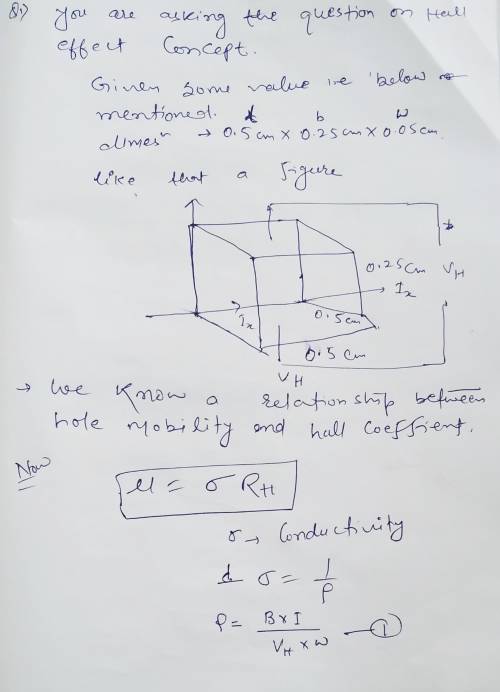 Q1) You are asking the question on Hall
effect Concept.
Given some value ie below
mentioned.
l b w
dimesn → 0.5cm x 0.25cm x 0.05cm
like that a figure
0.25cm VH
Ix
Ix 0.5cm
0.5 cm
VH
→ We know a relationship between
hole mobility and hall coeffient.
Now
μ = σ RH
σ → Conductivity
σ = 1/ρ
ρ = B x I / VH x w — ①